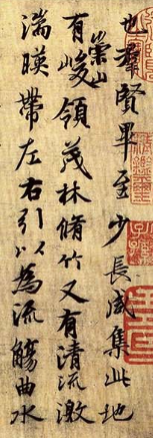 也羣賢畢至少長咸集此地
有崇山峻領茂林脩竹又有清流激
湍暎帶左右引以為流觴曲水